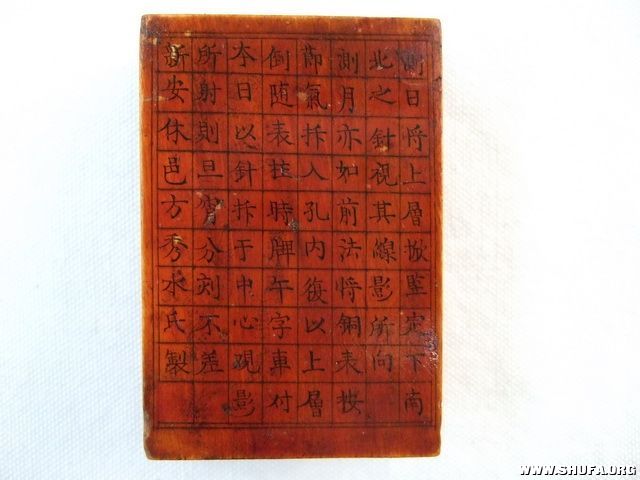 測日将上層揿竪定下南
北之針視其線影所向
測月亦如前法将銅表按
節氣拆入孔内復以上層
倒随表拄時牌午字車付
夲日以針拆于中心視影
所射則旦宵分刻不差
新安休邑方秀水氏製
WWW.SHUFA.ORG